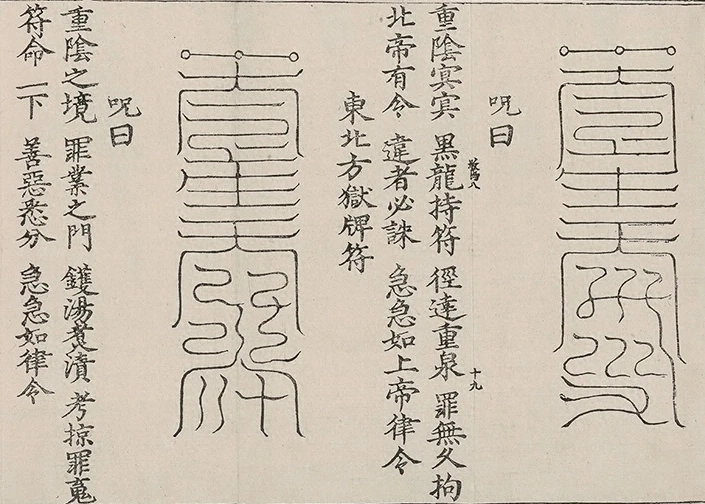 呪曰
重陰冥冥 黑龍持符 徑達重泉 罪無久拘
十九
北帝有令 違者必誅 急急如上帝律令
東北方獄牌符
呪曰
重陰之境 罪業之門 鑊湯煑漬 考掠罪䰟
符命一下 善惡悉分 急急如律令